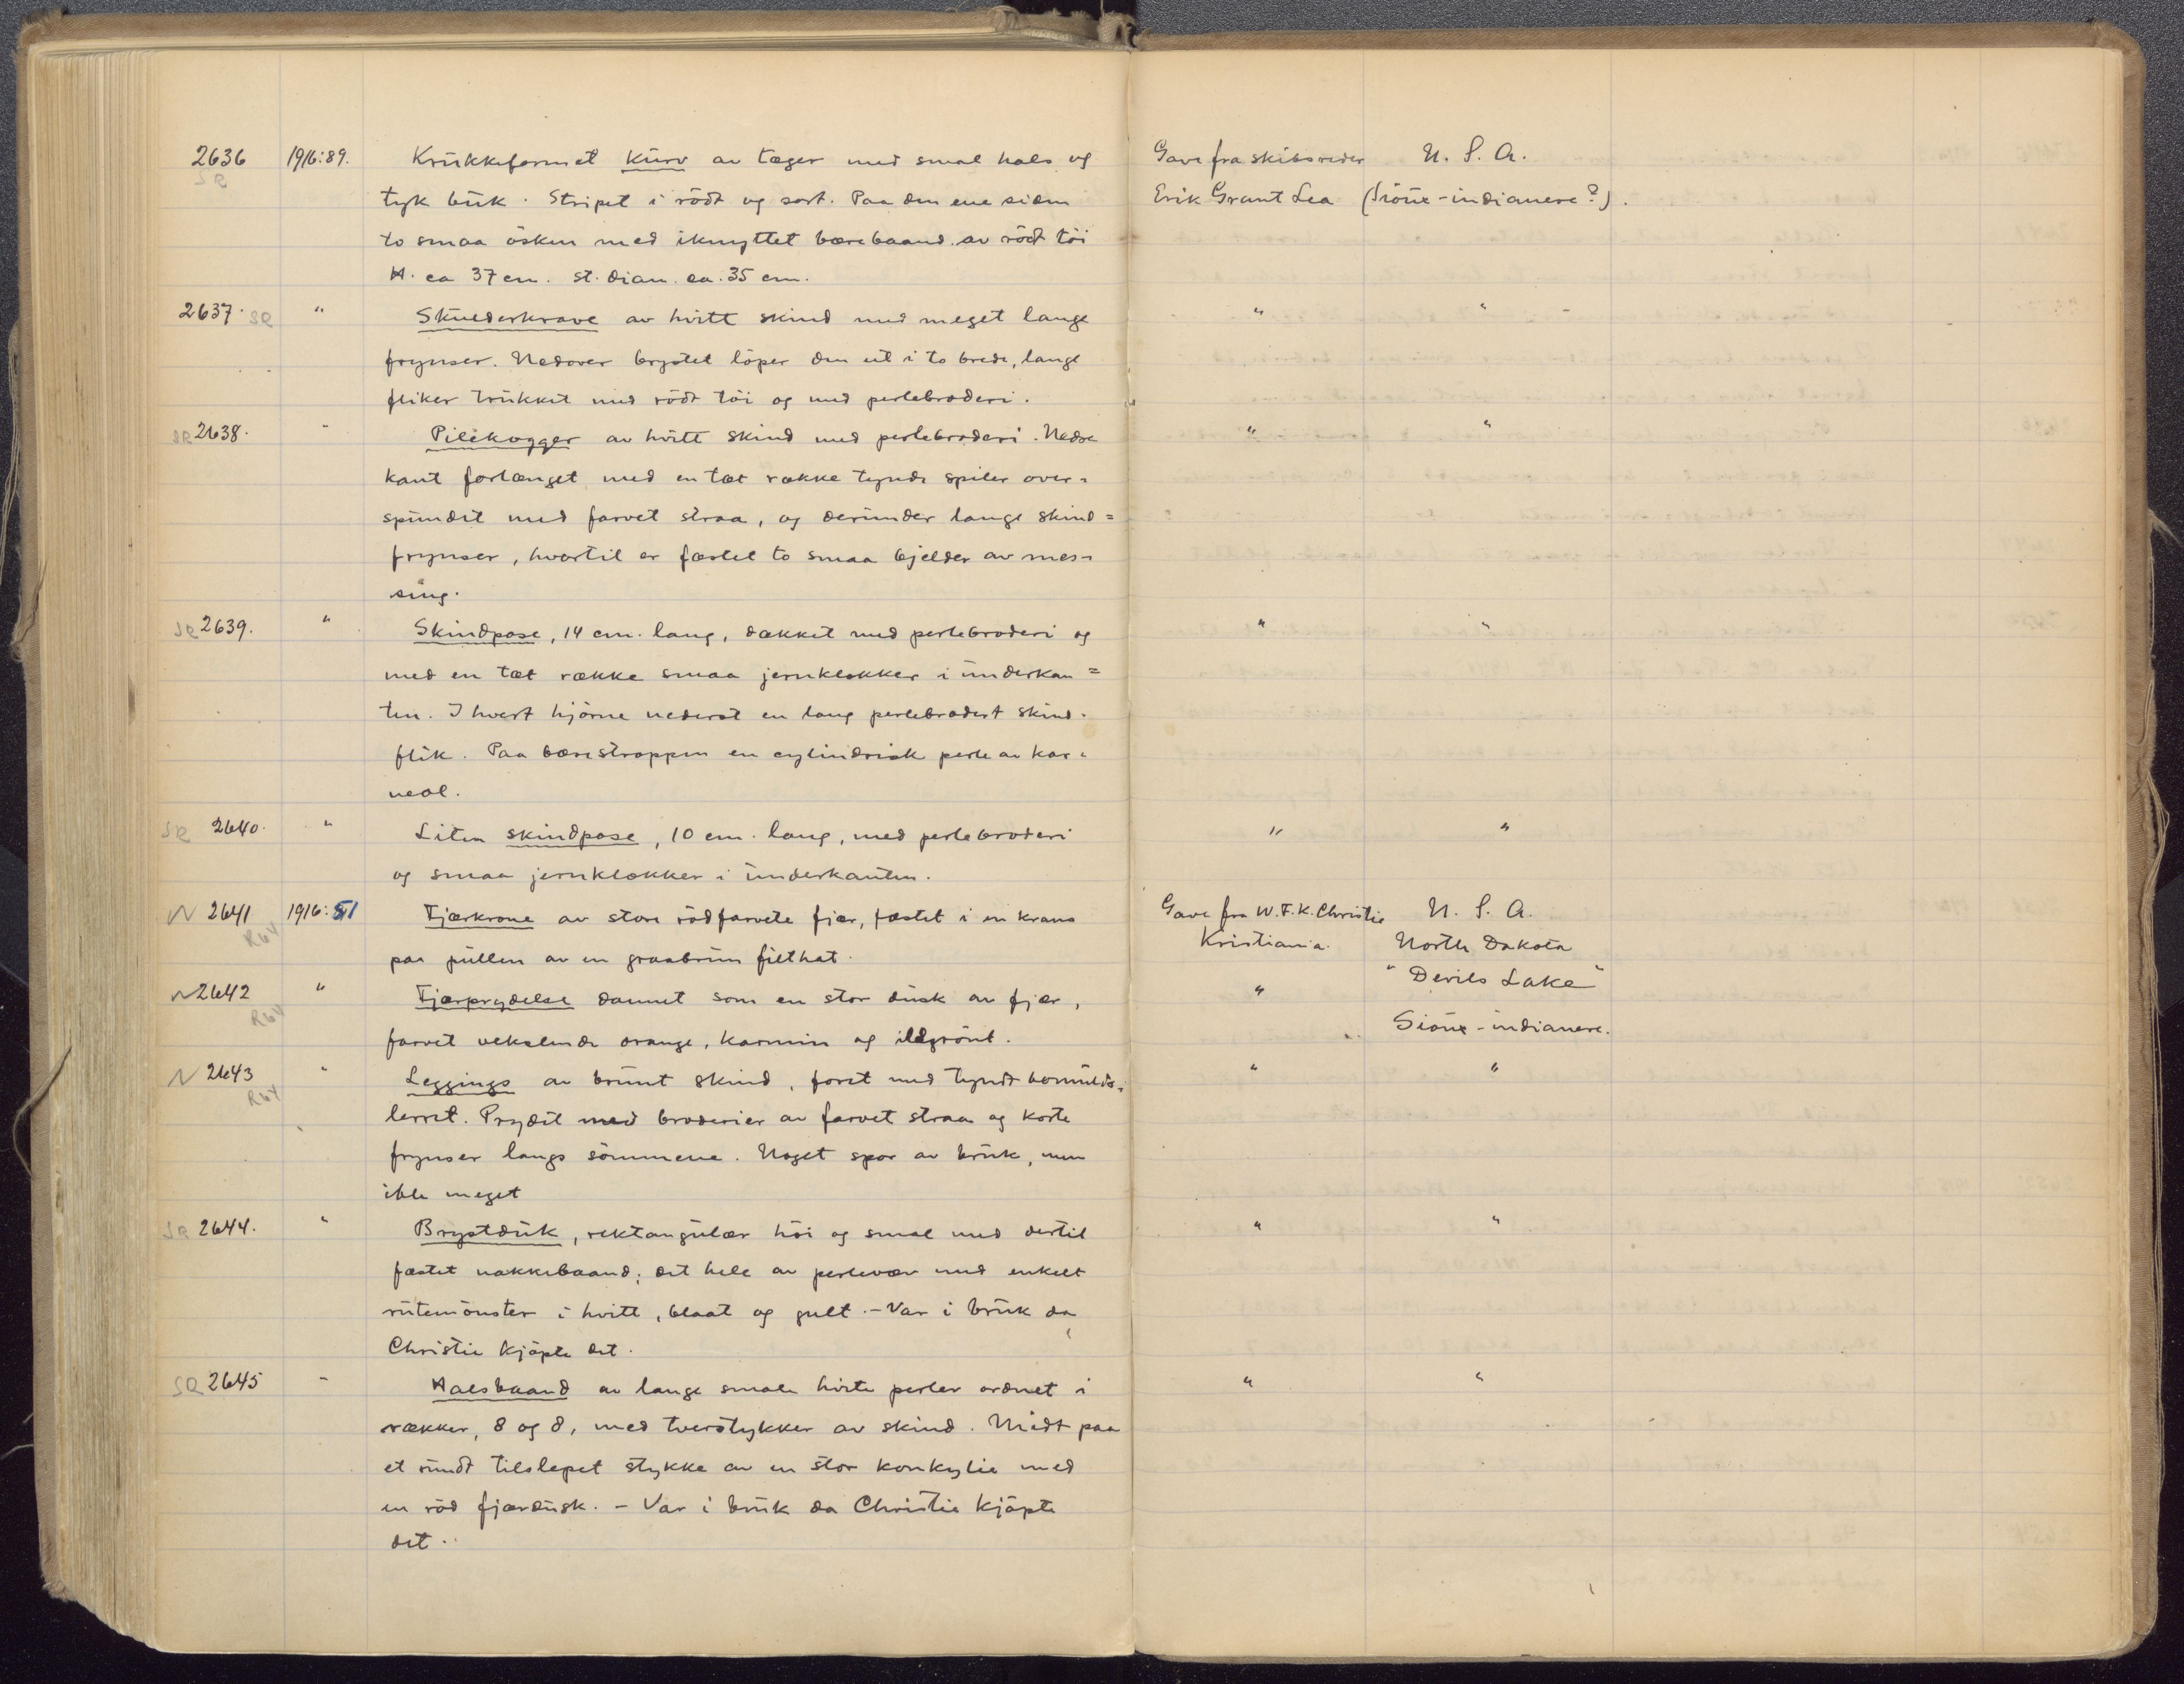 2636 1916:89. Krukkeformet kurv av tæger med smal hals og Gave fra skibsreder U. S. A.
SR tyk buk. Stripet i rödt og sort. Paa den ene siden Erik Grant Lea (Sioux-indianere?).
to smaa ösken med iknyttet bærebaand av rödt töi
H. ca 37 cm. st. diam. ca. 35 cm.
2637. SR " Skulderkrave av hvitt skind med meget lange " "
frynser. Nedover brystet löper den ut i to brede, lange
fliker trukket med rödt töi og med perlebroderi.
SR 2638. " Pilekogger av hvitt skind med perlebroderi. Nedre " "
kant forlænget med en tæt række tynde spiler over=
spundet med farvet straa, og derunder lange skind=
frynser, hvortil er fæstet to smaa bjelder av mes=
sing.
SR 2639. " Skindpose, 14 cm. lang, dækket med perlebroderi og " "
med en tæt række smaa jernklokker i underkan=
ten. I hvert hjörne nederst en lang perlebrodert skind-
flik. Paa bærestroppen en cylindrisk perle av kar=
neol.
SR 2640. " Liten skindpose, 10 cm. lang, med perlebroderi " "
og smaa jernklokker i underkanten.
N 2641 1916:51 Fjærkrone av store rödfarvete fjær, fæstet i en krans Gave fra W.F.K. Christie U. S. A.
R64 paa pullen av en graabrun filthat. Kristiania. North Dakota
N 2642 " Fjærprydelse dannet som en stor dusk av fjær, " "Devils Lake"
R64 farvet vekslende orange, karmin og ildgrönt. " Sioux-indianere.
N 2643 " Leggings av brunt skind, foret med tyndt bomulds= " "
R64 lerret. Prydet med broderier av farvet straa og korte
frynser langs sömmene. Noget spor av bruk, men
ikke meget
SR 2644. " Brystduk, rektangulær höi og smal med dertil " "
fæstet nakkebaand; det hele av perlevæv med enkelt
rutemönster i hvitt, blaat og gult. - Var i bruk da
Christie kjöpte det.
SR 2645 - Halsbaand av lange smale hvite perler ordnet i " "
rækker, 8 og 8, med tverstykker av skind. Midt paa
et rundt tilslepet stykke av en stor konkylie med
en röd fjærdusk. - Var i bruk da Christie kjöpte
det.